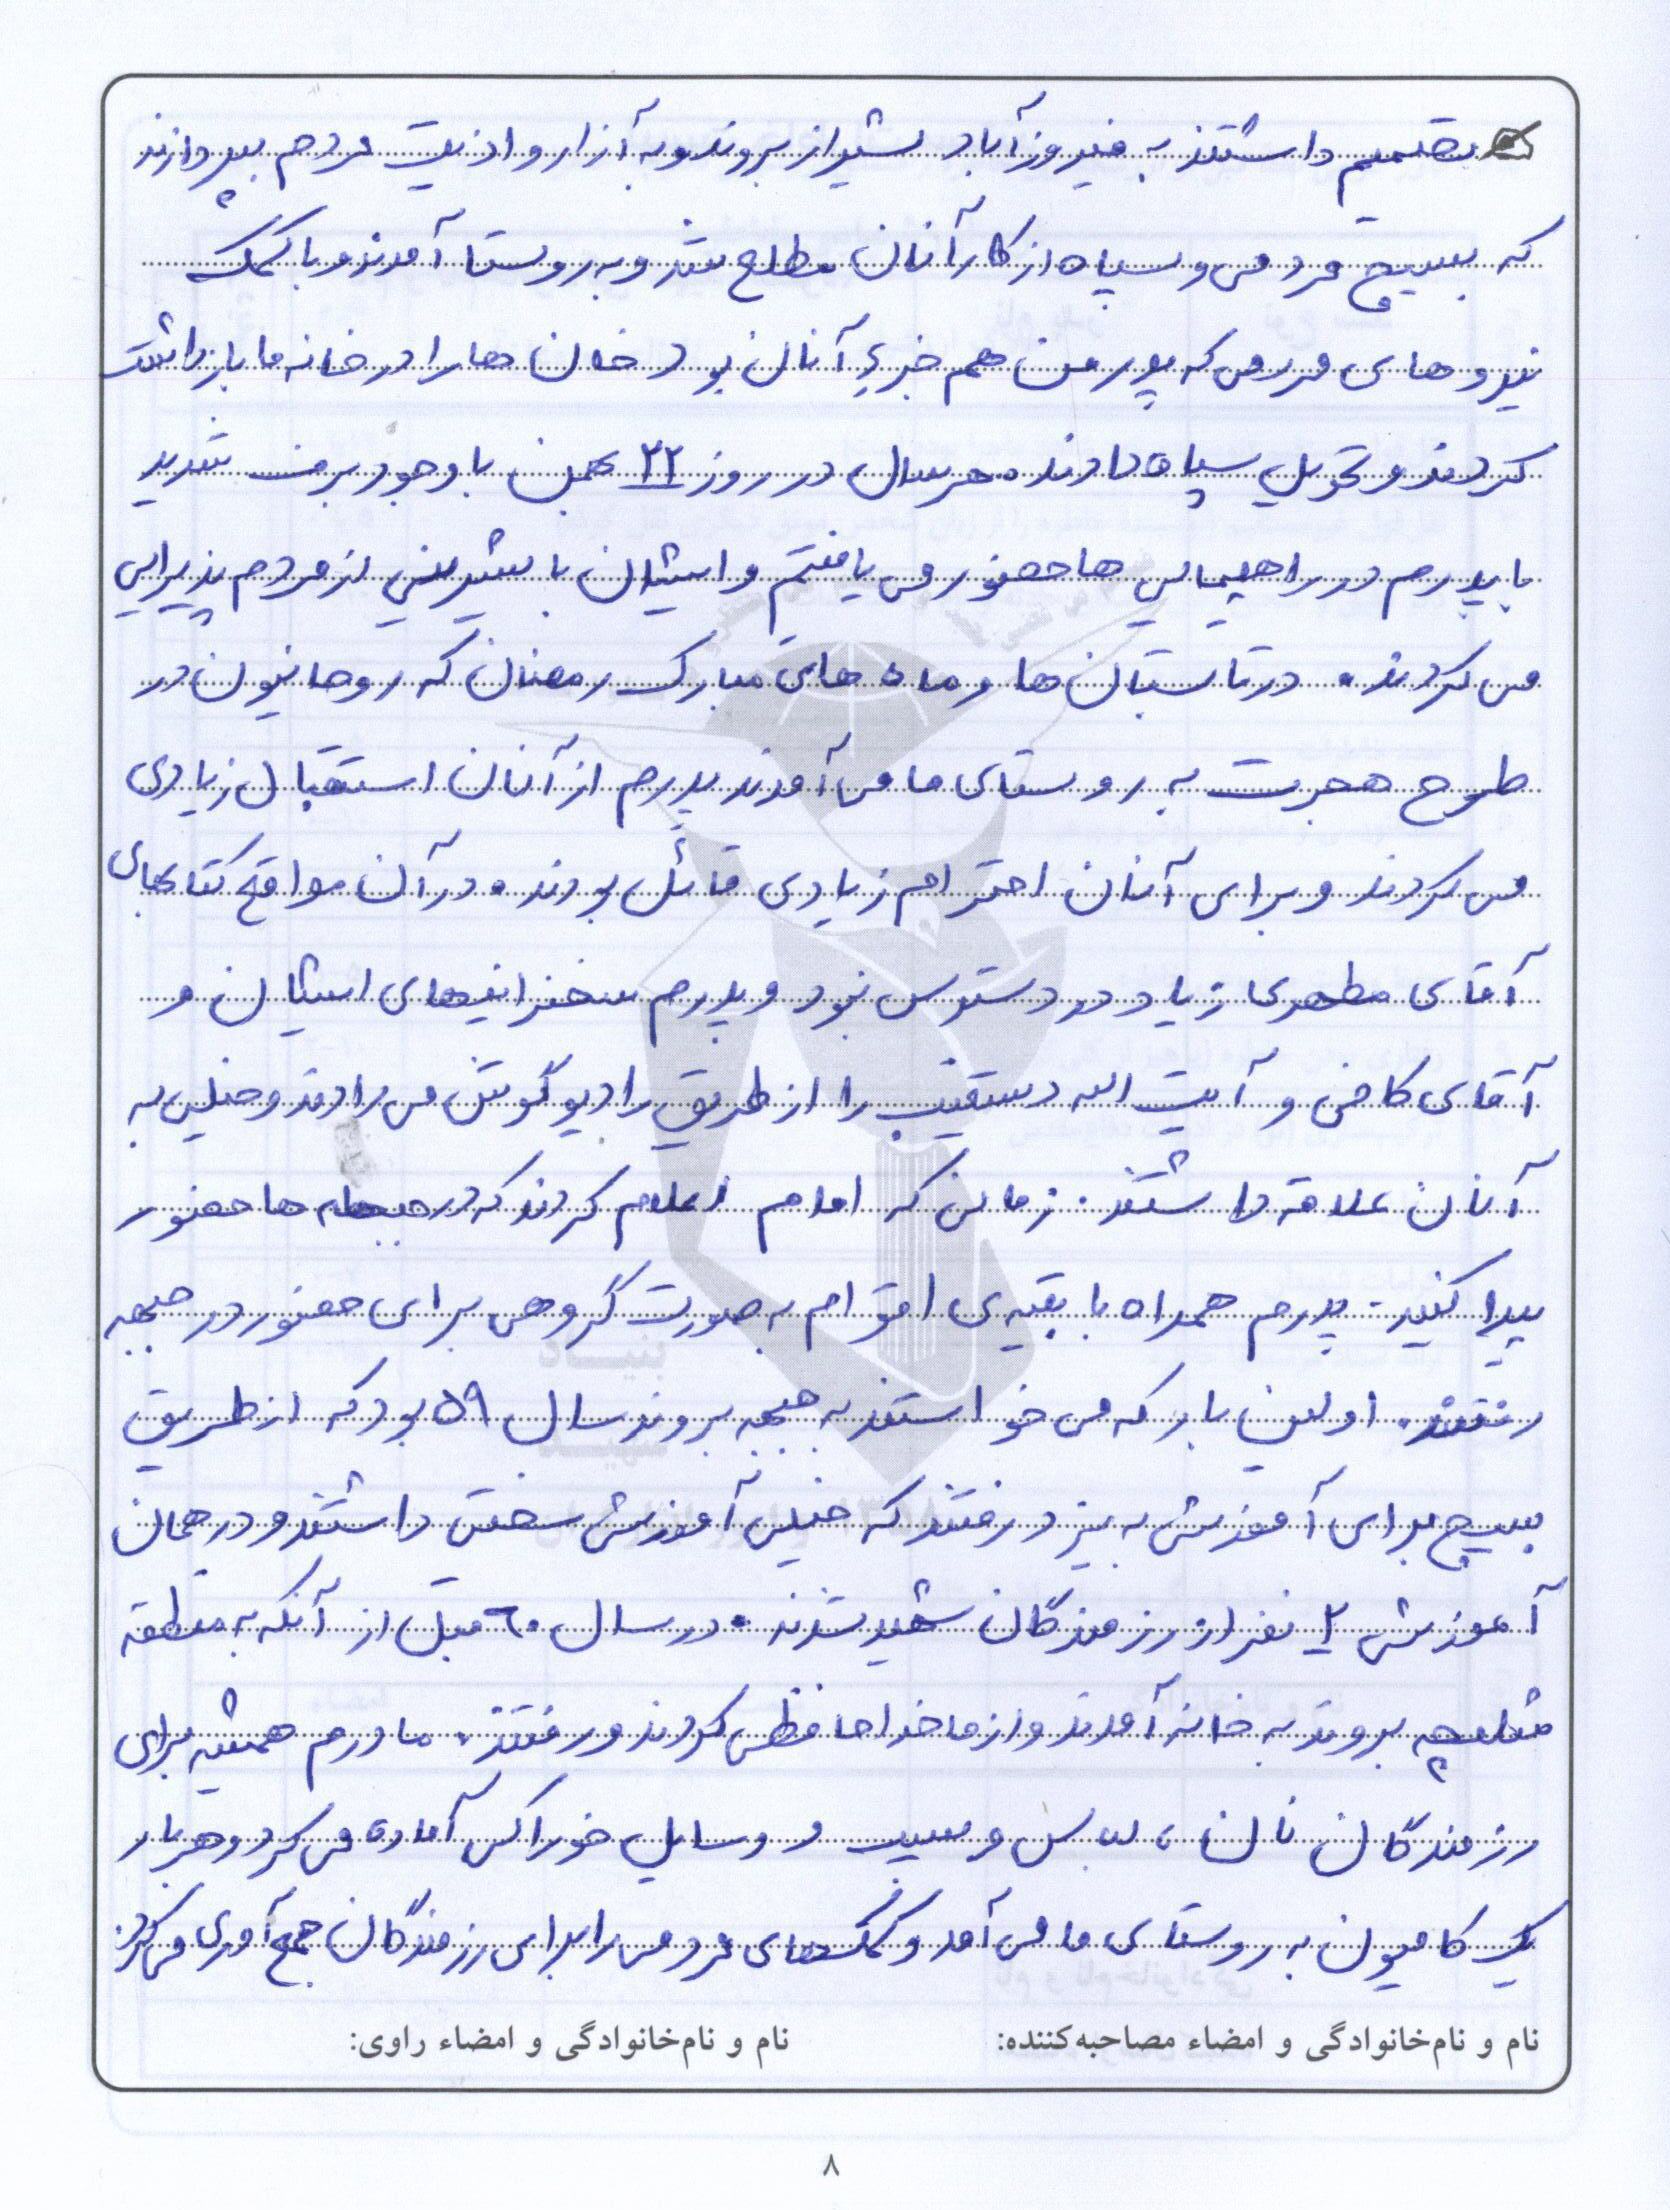 تصمیم داشتند به فیروزآباد شیراز بروند و به آزار و اذیت مردم بپردازند
که بسیج مردمی و سپاه از کار آنان مطلع شد و به روستا آمدند و با کمک
نیروهای مردمی که پدر من هم جزء آنان بود خان ها را در خانه ما بازداشت
کردند و تحویل سپاه دادند. هر سال در روز ۲۲ بهمن با وجود برف شدید
با پدرم در راهپیمایی ها حضور می یافتم و ایشان با شیرینی از مردم پذیرایی
می کردند. در تابستان ها و ماه های مبارک رمضان که روحانیون در
طرح هجرت به روستای ما می آمدند پدرم از آنان استقبال زیادی
می کردند و برای آنان احترام زیادی قائل بودند. در آن مواقع کتابهای
آقای مطهری زیاد در دسترس نبود و پدرم سخنرانیهای ایشان و
آقای کافی و آیت الله دستغیب را از طریق رادیو گوش می دادند و خیلی به
آنان علاقه داشتند. زمانی که امام اعلام کردند که در جبهه ها حضور
پیدا کنید. پدرم همراه با بقیه ی اقوام به صورت گروهی برای حضور در جبهه
رفتند. اولین بار که می خواستند به جبهه بروند سال ۵۹ بود که از طریق
بسیج برای آموزش به یزد رفتند که خیلی آموزش سختی داشتند و در همان
آموزش ۲ نفر از رزمندگان شهید شدند. در سال ۶۰ قبل از آنکه به منطقه
شلمچه بروند به خانه آمدند و از ما خداحافظی کردند و رفتند. مادرم همیشه برای
رزمندگان نان، لباس و سیب و وسایل خوراکی آماده می کرد و هر بار
یک کامیون به روستای ما می آمد و کمکهای مردمی را برای رزمندگان جمع آوری می کرد.
نام و نام‌خانوادگی و امضاء مصاحبه‌کننده: نام و نام‌خانوادگی و امضاء راوی:
۸